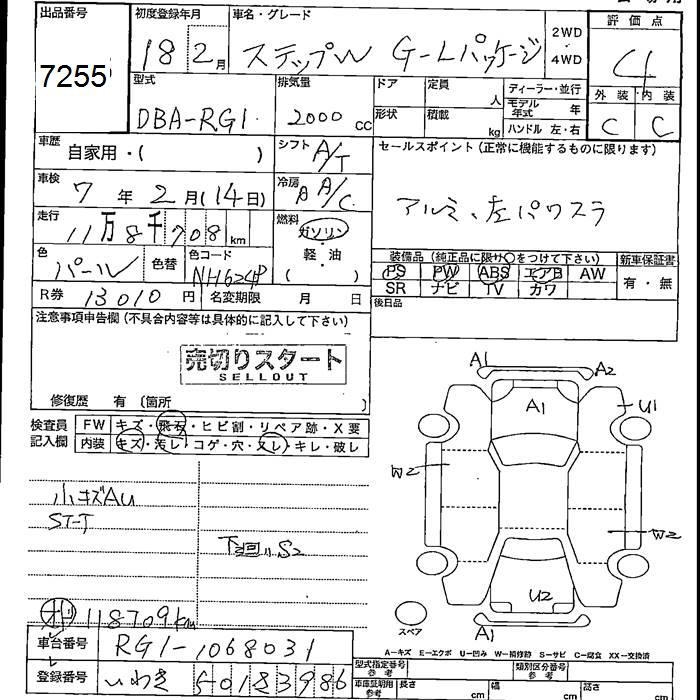 出品番号 初度登録年月 車名・グレード 2WD・4WD 評価点
7255 18 2月 ステップW G-Lパッケージ 4
型式 排気量 ドア 定員 人 ディーラー・並行 外装 内装
DBA-RG1 2000cc 形状 積載 kg モデル年式 年 C C
ハンドル 左・右
車歴 自家用・( ) シフト A/T セールスポイント(正常に機能するものに限ります)
車検 7年2月(14日) 冷房 A A/C
アルミ、左パワスラ
走行 11万8千708km 燃料 ガソリン
軽・油
( )
色 パール 色替 色コード NH624P
装備品(純正品に限り○をつけて下さい) 新車保証書
PS PW ABS エアB AW 有・無
SR ナビ TV カワ
R券 13010円 名変期限 月 日 後日品
注意事項申告欄(不具合内容等は具体的に記入して下さい)
売切りスタート
SELLOUT
修復歴 有(箇所 )
検査員記入欄 FW キズ・飛石・ヒビ割・リペア跡・X要
内装 キズ・汚レ・コゲ・穴・スレ・キレ・破レ
A1 A2
A1 U1
W2
W2
U2
A1
スペア
小キズAU
ST-T
下廻りS2
118709km
車台番号 RG1-1068031
登録番号 いわき 501 83986
A−キズ E−エクボ U−凹み W−補修跡 S−サビ C−腐食 XX−交換済
型式指定番号 参考 類別区分番号 参考
車庫証明用 参考 長さ cm 幅 cm 高さ cm